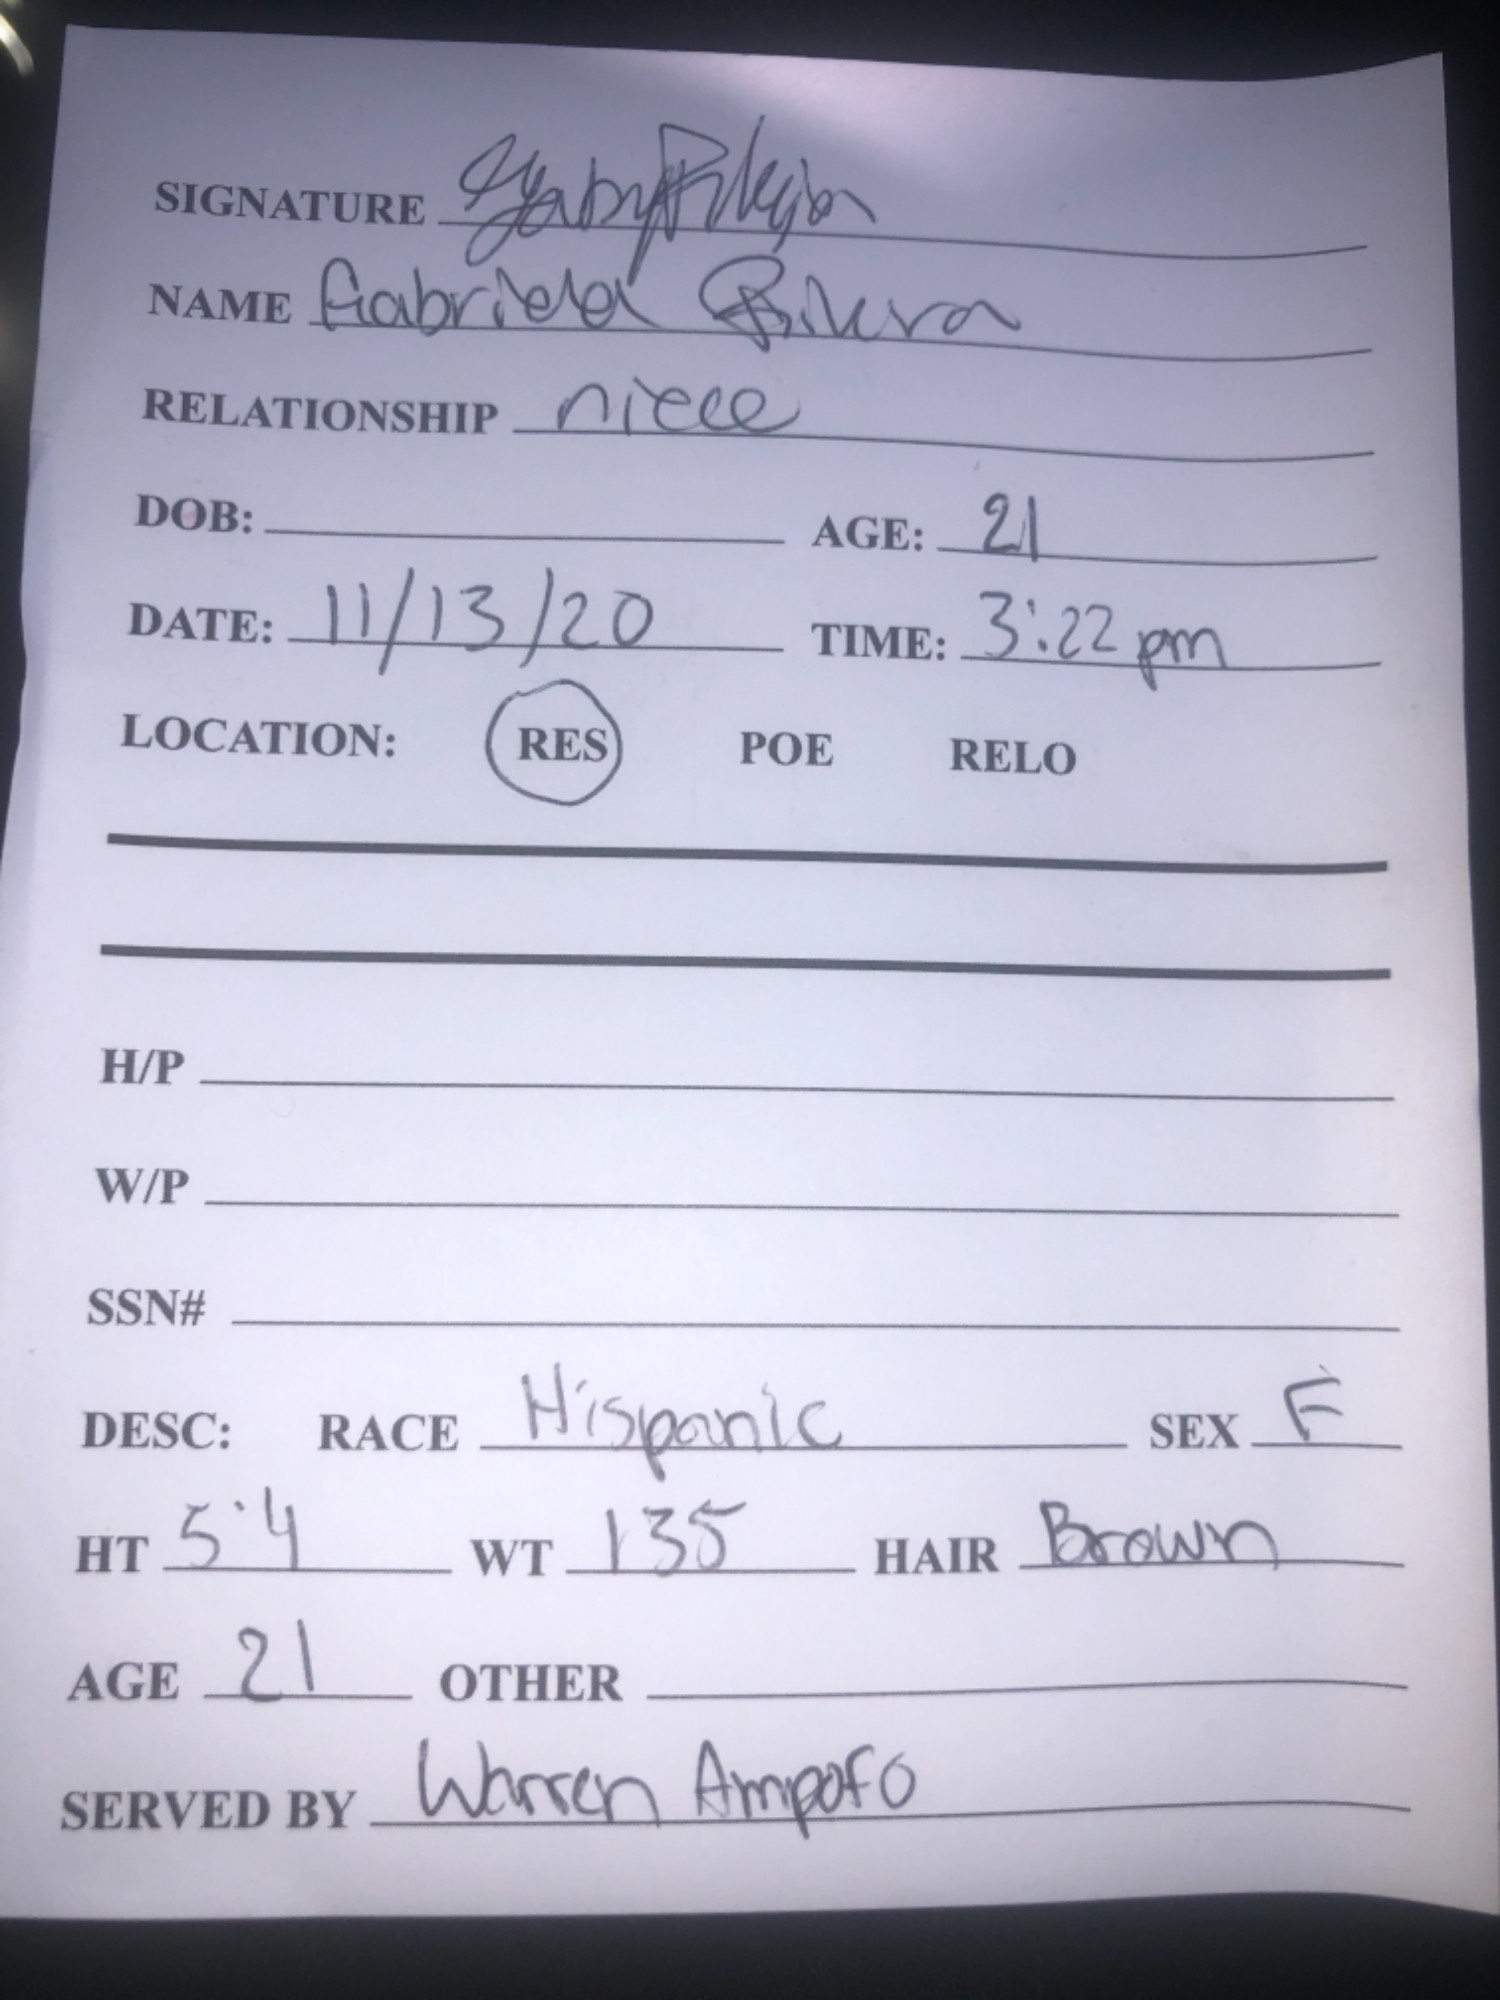 SIGNATURE
NAME Gabriela
RELATIONSHIP niece
DOB: AGE: 21
DATE: 11/13/20 TIME: 3:22 pm
LOCATION: RES POE RELO
H/P
W/P
SSN#
DESC: RACE Hispanic SEX F
HT 5'4 WT 135 HAIR Brown
AGE 21 OTHER
SERVED BY Warren Ampofo